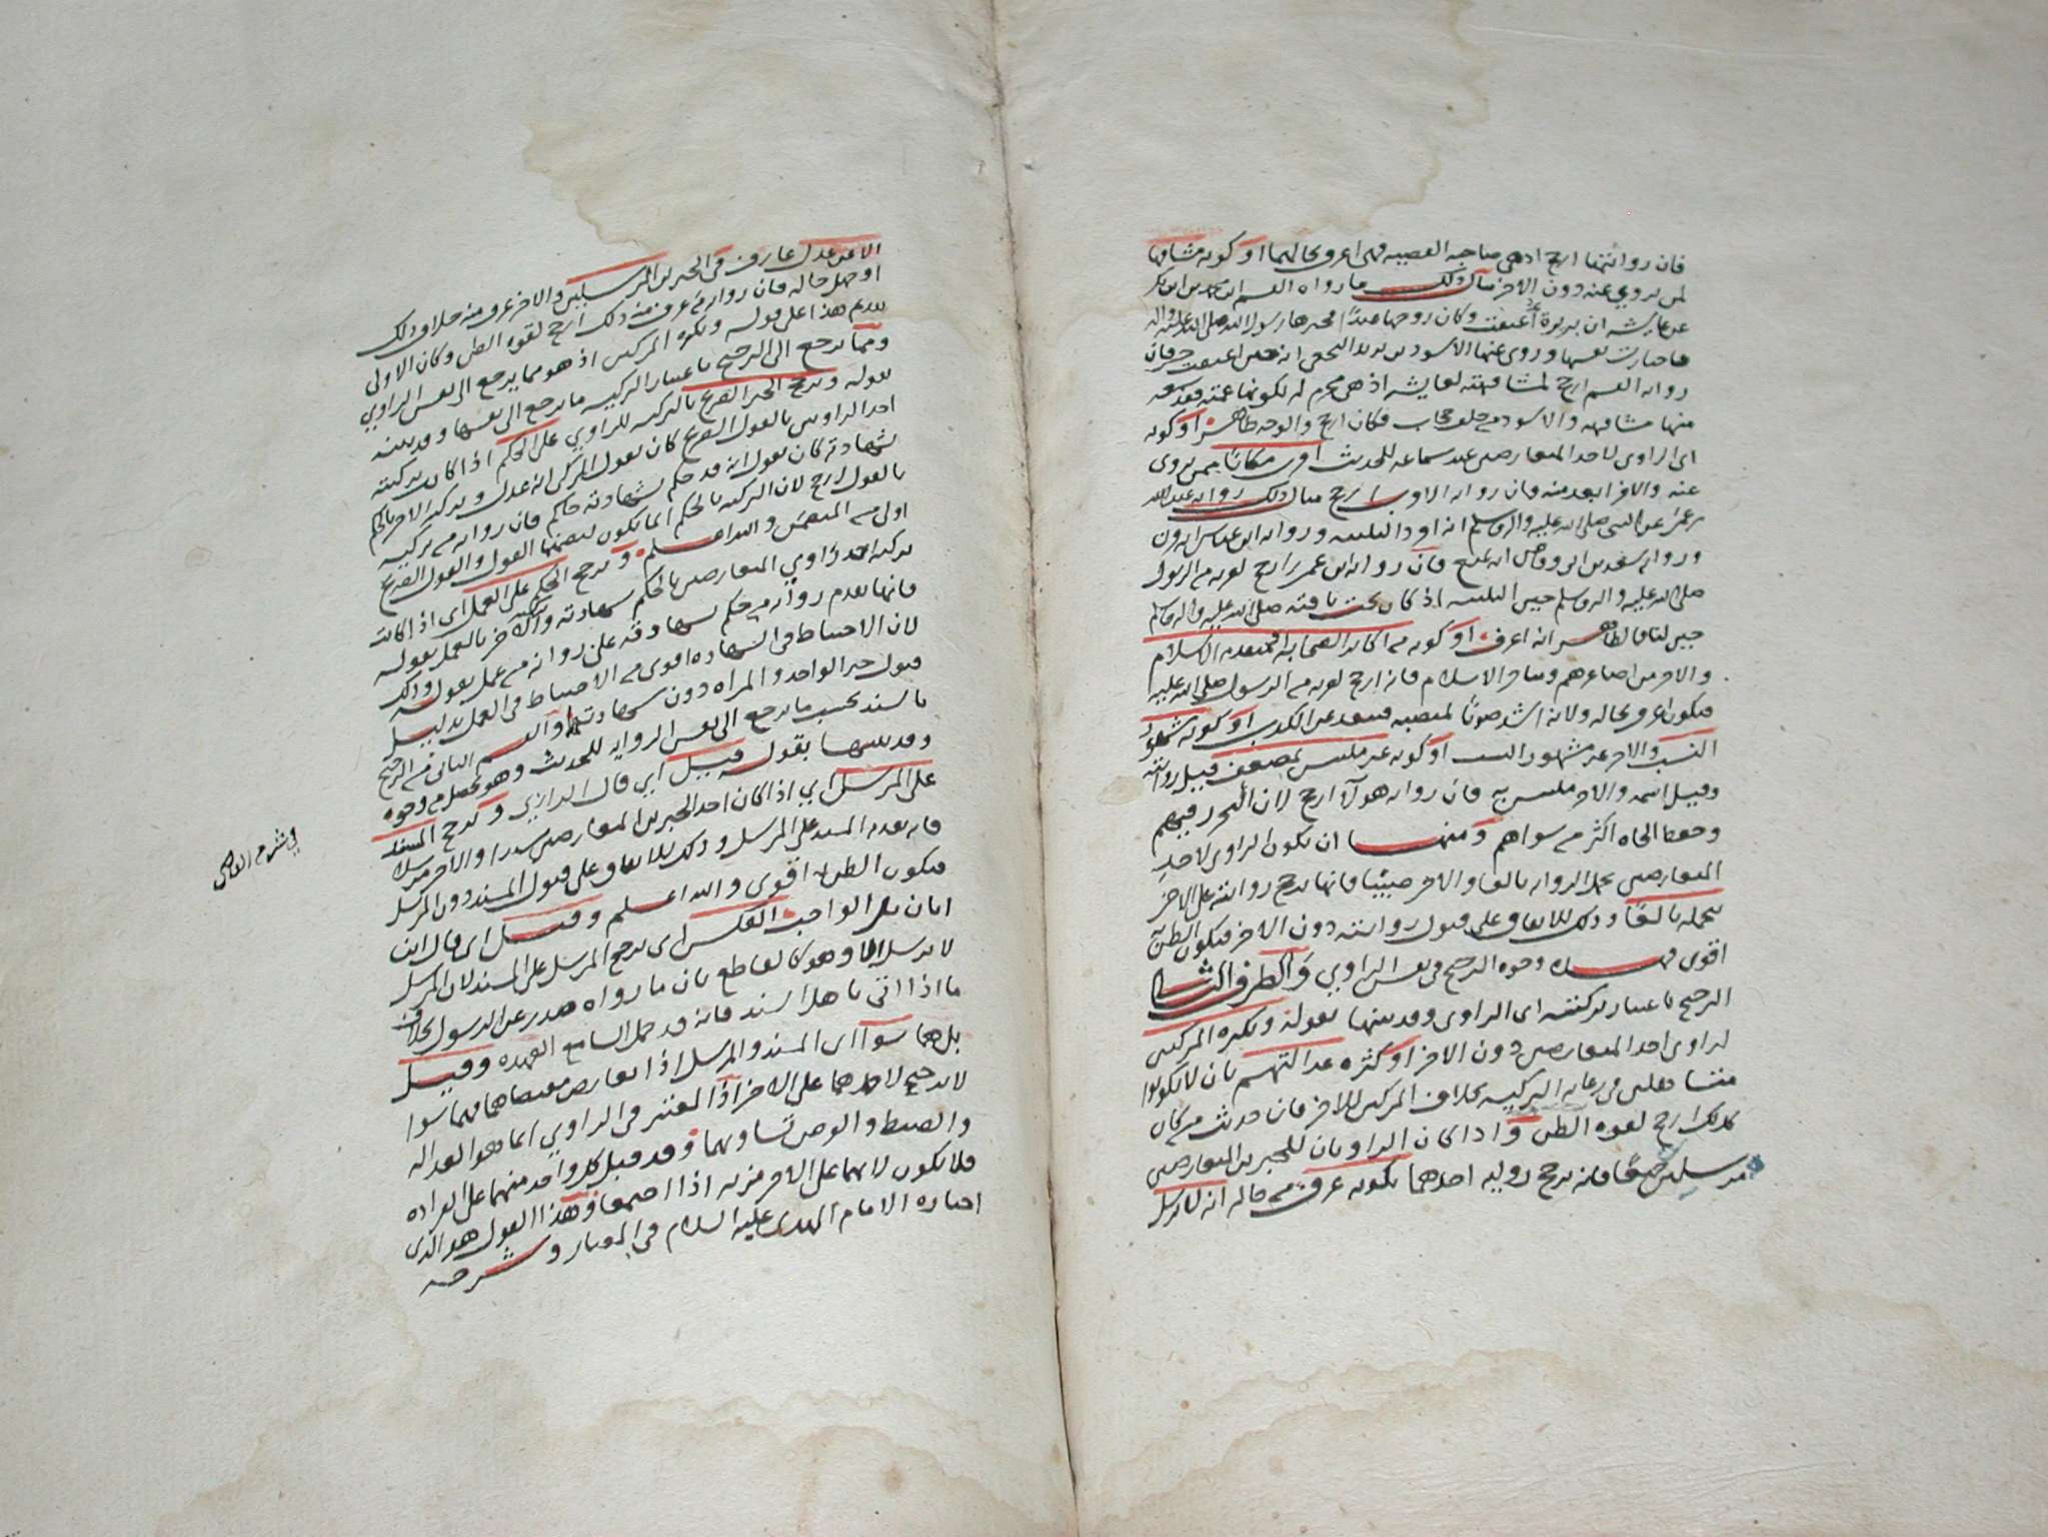 فان روايتها ارجح اذ هي صاحبه القصيه فهي اعرف بحالهما او كونه مشافها
لمن يروي عنه دون الاخر مثال ذلك ما رواه القسم ابن محمد بن ابي بكر
عن عايشه ان بريرة أعتقت وكان زوجها عبدًا فخيرها رسول الله صلى الله عليه واله
فاختارت نفسها وروى عنها الاسود بن يزيد النخعي انه حين اعتقت حر فان
رواية القسم ارجح لمشافهته لعايشه اذ هي محرم له لكونها عمته فقد سمع
منها مشافهه والاسود من خلف حجاب فكان ارجح والوجه ظاهر او كونه
اي الراوي لاحد المتعارضين عند سماعه للحديث اقرب مكانًا ممن يروى
عنه والاخر ابعد منه فان رواية الاقرب ارجح مثال ذلك رواية عبد الله
بن عمر عن النبي صلى الله عليه واله وسلم انه افرد التلبيه ورواية ابن عباس انه قرن
ورواية سعد بن ابي وقاص انه تمتع فان رواية ابن عمر ارجح لقربه من الرسول
صلى الله عليه واله وسلم حين التلبيه اذ كان تحت ناقته صلى الله عليه واله وسلم
حين لبا فالظاهر انه اعرف او كونه من اكابر الصحابه لتقدمه الاسلام
والاخر من اصاغرهم ومتاخر الاسلام فانه ارجح لقربه من الرسول صلى الله عليه
فيكون اعرف بحاله ولانه اشد صونًا لمنصبه فيبعد عن الكذب او كونه مشهور
النسب والاخر غير مشهور النسب او كونه غير ملتبس بمضعف قبيل روايته
وقيل اسمه والاخر ملتبس به فان رواية هولآء ارجح لان التحرز فيهم
وحفظ الجاه اكثر من سواهم ومنها ان يكون الراوى لاحد
المتعارضين تحمل الروايه بالغا والاخر صبيًا فانها ترجح روايته على الاخر
بتحمله بالغًا وذلك للاتفاق على قبول روايته دون الاخر فيكون الظن به
اقوى فهذه وجوه الترجيح في نفس الراوي والطرف الثاني
الترجيح باعتبار تزكيته اى الراوى وقد بينها بقوله وبكثره المزكين
لراوى احد المتعارضين دون الاخر او كثره عدالتهم بان لا يكونوا
متساهلين في رعايه التزكيه بخلاف المزكين للاخر فان حديث من كان
كذلك ارجح لقوه الظن واذا كان الراويان للخبرين المتعارضين
مرسلين جميعًا فانه يرجح رواية احدهما بكونه عرف من حاله انه لا يرسل
الا عن عدل عارف في الخبرين المرسلين والاخر عرف منه خلاف ذلك
او جهل حاله فان رواية من عرف منه ذلك ارجح لقوه الظن وكان الاولى
تقديم هذا على قوله وبكثره المزكين اذ هو مما يرجع الى نفس الراوي
ومما يرجع الى الترجيح باعتبار التزكيه ما يرجع الى نفسها وقد بينه
بقوله ويرجح الخبر الصريح بالتزكيه للراوي على الحكم اذا كان تزكيه
احد الراويين بالقول الصريح كان يقول المزكى انه عدل وتزكيه الاخر بالحكم
بشهادته كان يقول انه قد حكم بشهادته حاكم فان روايه من تزكيه
بالقول ارجح لان التزكيه بالحكم انما تكون لتضمنها القول والقول الصريح
اولى من المتضمن والله اعلم ويرجح الحكم على العمل اى اذا كانت
تزكيه احد راوي المتعارضين بالحكم بشهادته والاخر بالعمل بقوله
فانها تقدم رواية من حكم بشهادته على رواية من عمل بقوله وذلك
لان الاحتياط في الشهاده اقوى من الاحتياط في العمل بدليل
قبول خبر الواحد والمراه دون شهادتهما والقسم الثاني في الترجيح
بالسند بحسب ما يرجع الى نفس الروايه للحديث وهو يحصل من وجوه
وقد بينها بقوله قيل اي قال الرازي ويرجح المسند
على المرسل اي اذا كان احد الخبرين المتعارضين مسندا والاخر مرسلا
فانه يقدم المسند على المرسل وذلك للاتفاق على قبول المسند دون المرسل
فيكون الظن به اقوى والله اعلم وقيل اى قال ابن
ابان بل الواجب العكس اى يرجح المرسل على المسند لان المرسل
لا يرسل الا وهو كالقاطع بان ما رواه صدر عن الرسول بخلاف
ما اذا اتى باهل السند فانه قد حمل السامع العهده وقيل
بل هما سوا اى المسند والمرسل اذا تعارض مقتضاهما فهما سوا
لا ترجيح لاحدهما على الاخر اذا المعتبر في الراوي انما هو العداله
والضبط والفرض تساويهما وقد قبل كل واحد منهما على انفراده
فلا يكون لايهما على الاخر مزيه اذا اجتمعا وهذا القول هو الذى
اختاره الامام المهدى عليه السلام في المعيار وشرحه